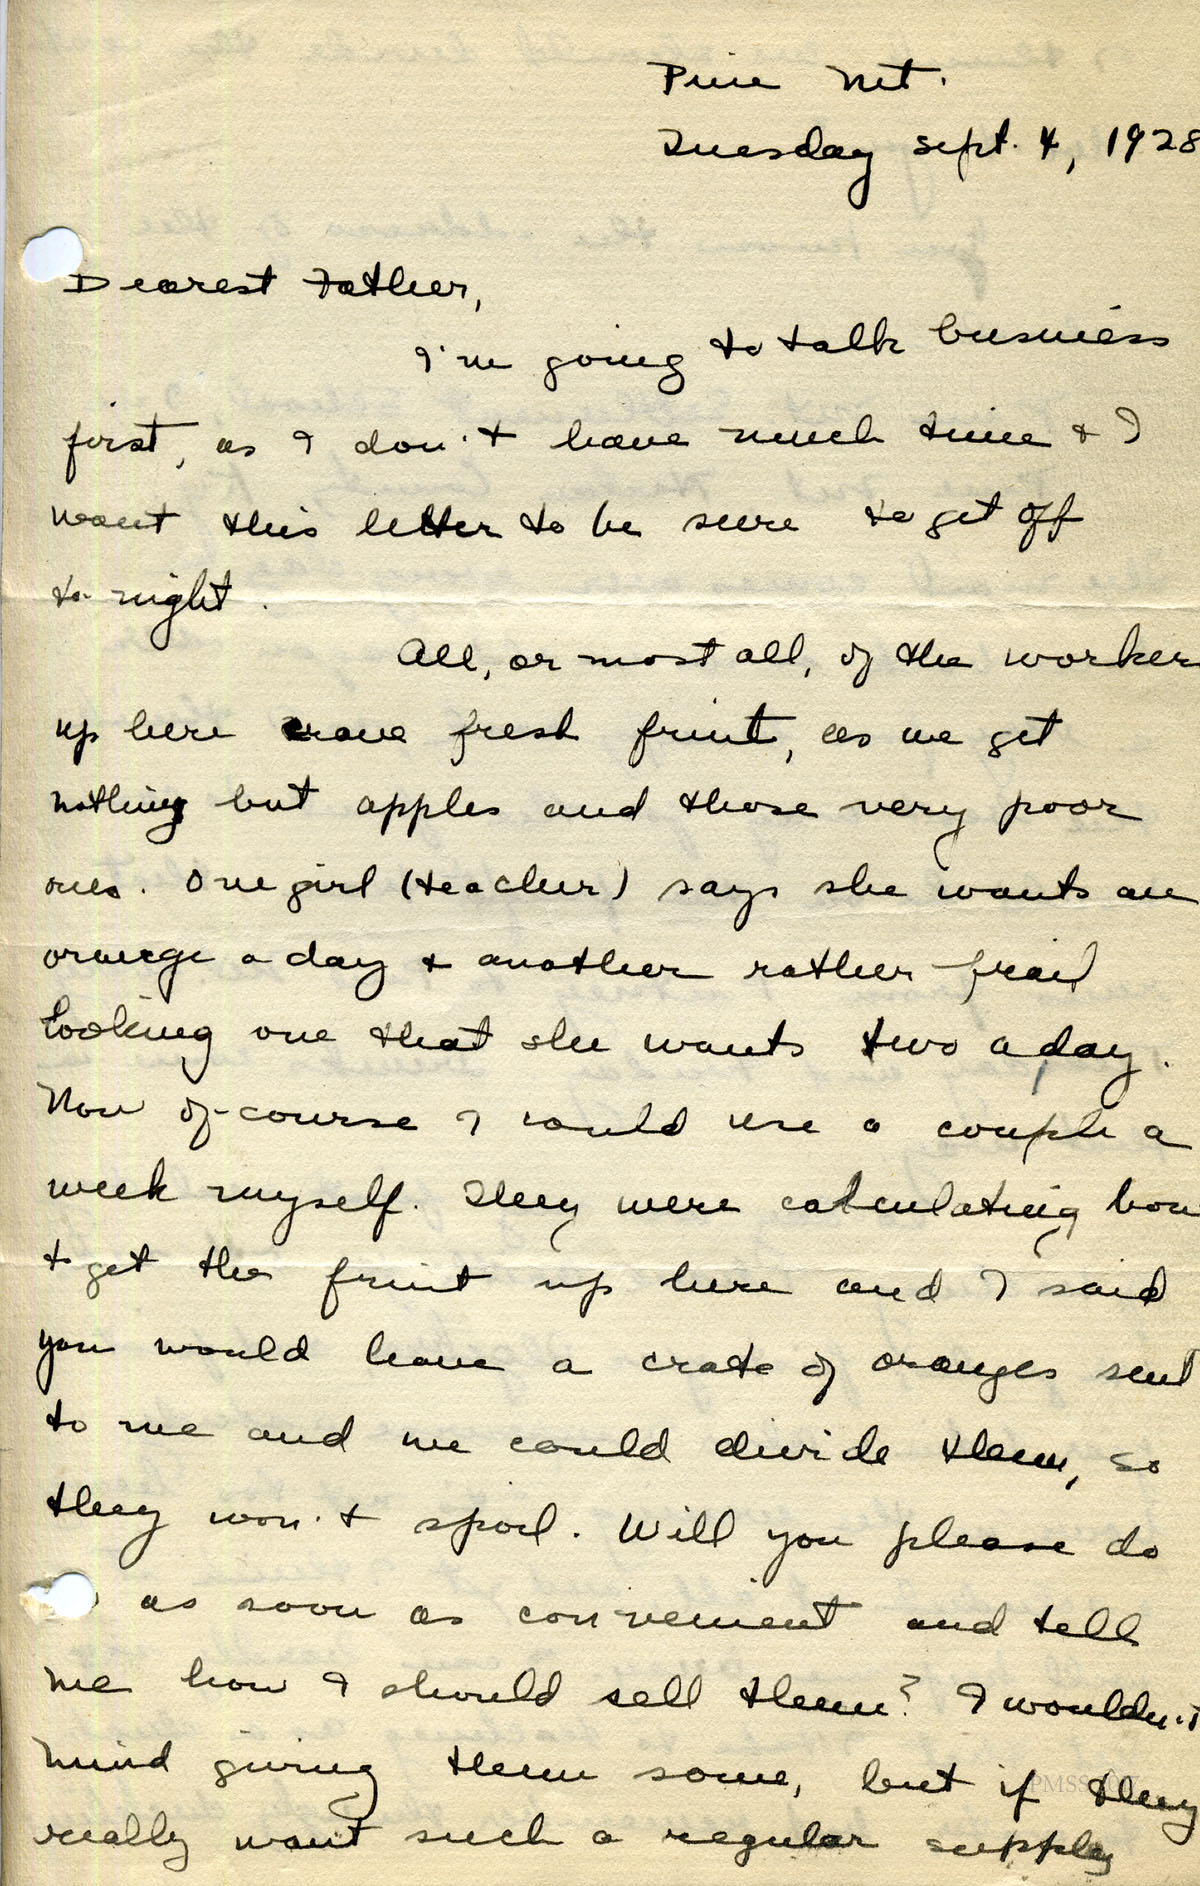 Pine Mt.
Tuesday Sept. 4, 1928
Dearest Father,
I'm going to talk business
first, as I don't have much time & I
want this letter to be sure to get off
to-night.
All, or most all, of the worker
up here crave fresh fruit, as we get
nothing but apples and those very poor
ones. One girl (teacher) says she wants an
orange a day & another rather frail
looking one that she wants two a day.
Now of-course I could use a couple a
week myself. They were calculating how
to get the fruit up here and I said
you would have a crate of oranges sent
to me and we could divide them, so
they won't spoil. Will you please do
as soon as convenient and tell
me how I should sell them? I wouldn't
mind giving them some, but if they
really want such a regular supply